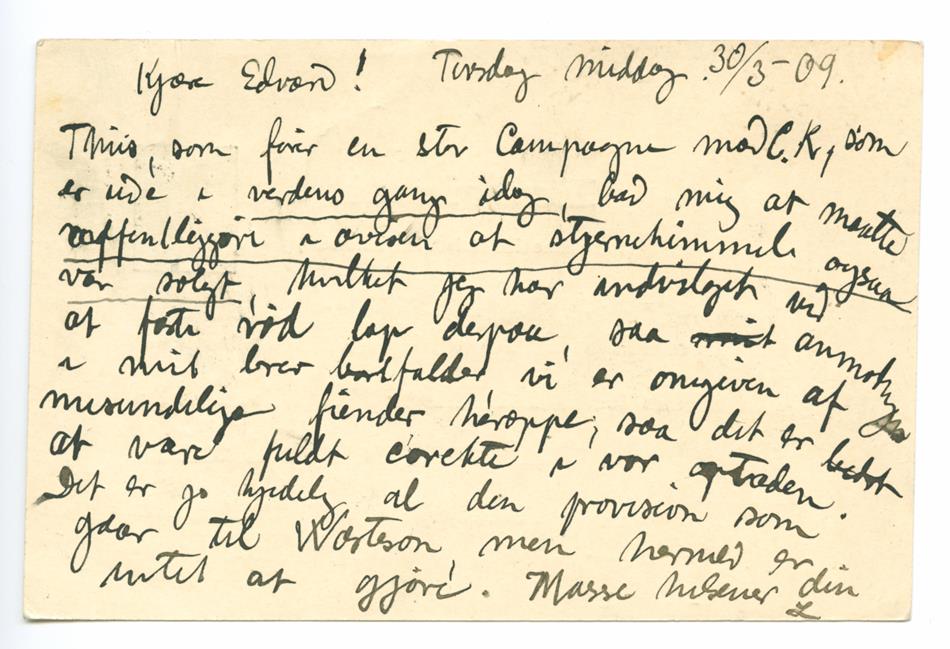 Kjære Edvard! Tirsdag middag 30/3-09.
Thiis, som fører en stor Campagne mod C. K., som
er ude i verdens gang idag, bad mig at maatte
offentliggjøre i avisen at stjernehimmel ogsaa
var solgt, hvilket jeg har indvilget ved
at fæste rød lap derpaa, saa anmoding
i mit brev bortfalder, vi er omgiven af
misundelige fiender heroppe, saa det er bedst
at være fuldt corekte i vor optræden.
Det er jo kjedelig al den provision som
gaar til men hermed er
intet at gjøre. Masse hilsener din
L